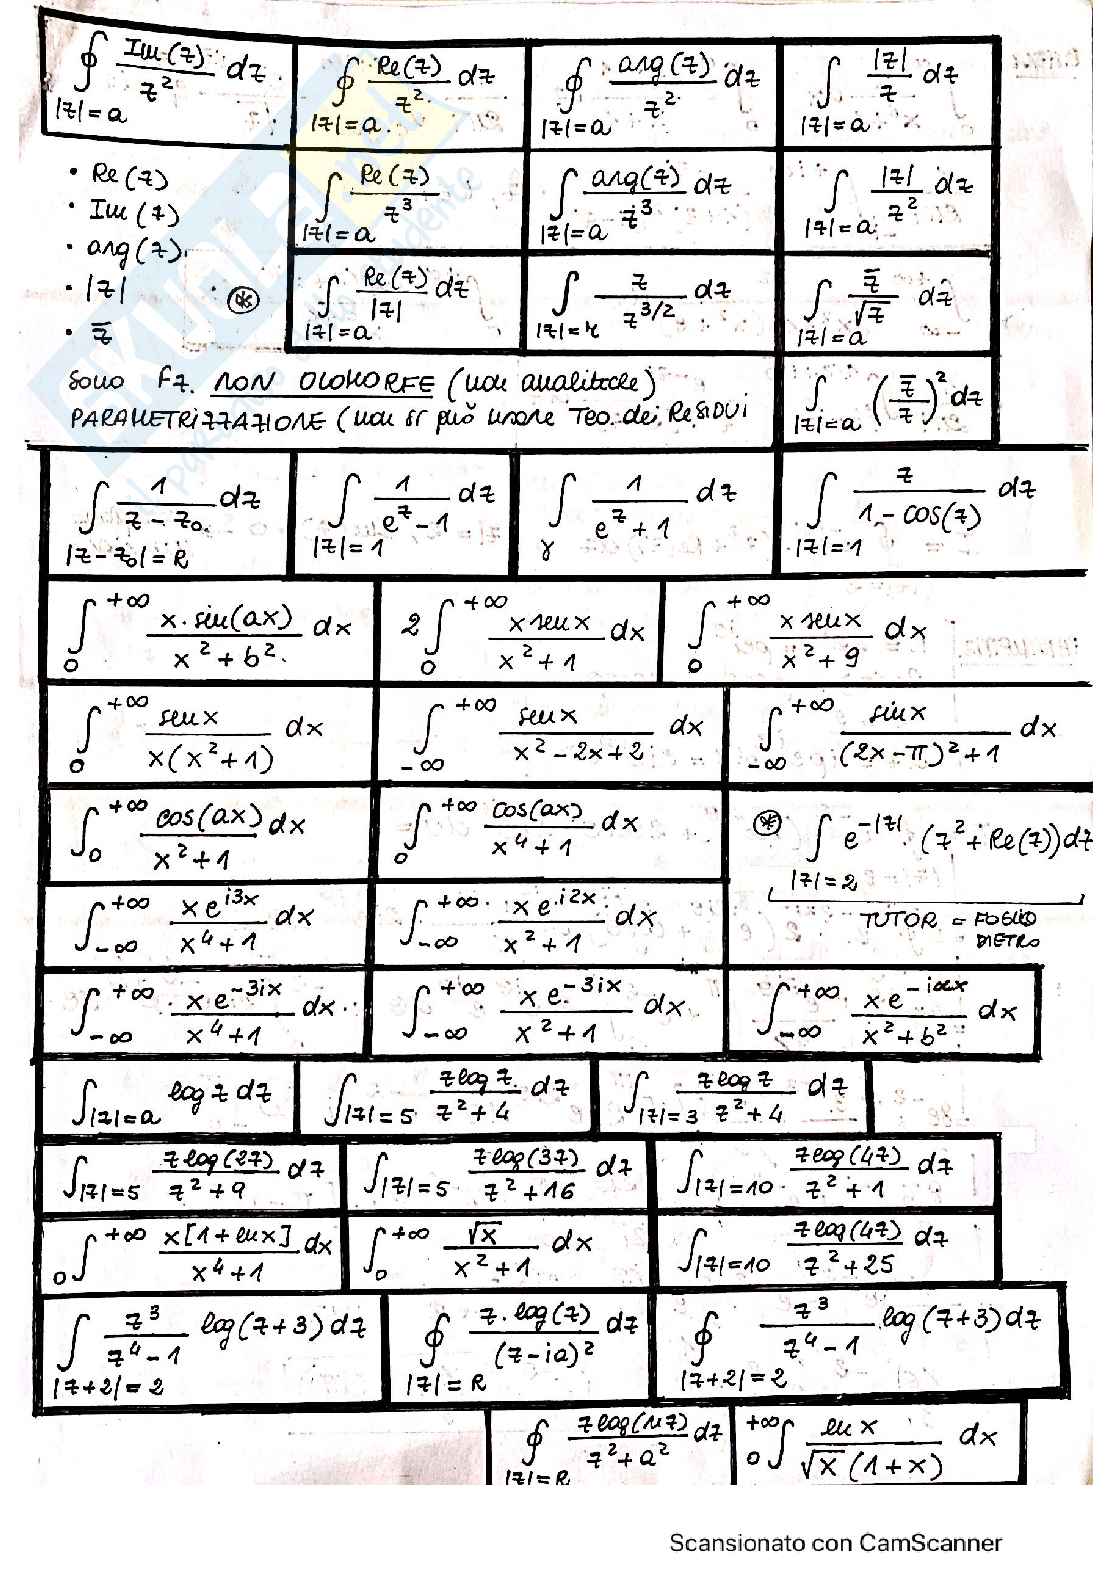 ∮_{|z|=a} Im(z)/z² dz
∮_{|z|=a} Re(z)/z² dz
∮_{|z|=a} arg(z)/z² dz
∫_{|z|=a} |z|/z dz
• Re(z)
• Im(z)
• arg(z)
• |z|
• z̅
⊛
∫_{|z|=a} Re(z)/z³
∫_{|z|=a} arg(z)/z³ dz
∫_{|z|=a} |z|/z² dz
∫_{|z|=a} Re(z)/|z| dz
∫_{|z|=r} z/z^{3/2} dz
∫_{|z|=a} z̅/√z dz
SONO Fz. NON OLOMORFE (non analitiche)
PARAMETRIZZAZIONE (non si può usare Teo. dei RESIDUI
∫_{|z|=a} (z̅/z)² dz
∫_{|z-z₀|=R} 1/(z-z₀) dz
∫_{|z|=1} 1/(e^z-1) dz
∫_γ 1/(e^z+1) dz
∫_{|z|=1} z/(1-cos(z)) dz
∫_0^{+∞} x·sin(ax)/(x²+b²) dx
2∫_0^{+∞} x senx/(x²+1) dx
∫_0^{+∞} x senx/(x²+9) dx
∫_0^{+∞} senx/(x(x²+1)) dx
∫_{-∞}^{+∞} senx/(x²-2x+2) dx
∫_{-∞}^{+∞} sinx/((2x-π)²+1) dx
∫_0^{+∞} cos(ax)/(x²+1) dx
∫_0^{+∞} cos(ax)/(x⁴+1) dx
⊛ ∫_{|z|=2} e^{-|z|} (z²+Re(z)) dz
TUTOR = FOGLIO
DIETRO
∫_{-∞}^{+∞} x e^{i3x}/(x⁴+1) dx
∫_{-∞}^{+∞} x e^{i2x}/(x²+1) dx
∫_{-∞}^{+∞} x e^{-3ix}/(x⁴+1) dx
∫_{-∞}^{+∞} x e^{-3ix}/(x²+1) dx
∫_{-∞}^{+∞} x e^{-iax}/(x²+b²) dx
∫_{|z|=a} log z dz
∫_{|z|=5} z log z/(z²+4) dz
∫_{|z|=3} z log z/(z²+4) dz
∫_{|z|=5} z log(2z)/(z²+9) dz
∫_{|z|=5} z log(3z)/(z²+16) dz
∫_{|z|=10} z log(4z)/(z²+1) dz
∫_0^{+∞} x[1+lnx]/(x⁴+1) dx
∫_0^{+∞} √x/(x²+1) dx
∫_{|z|=10} z log(4z)/(z²+25) dz
∫_{|z+2|=2} z³/(z⁴-1) log(z+3) dz
∮_{|z|=R} z·log(z)/(z-ia)² dz
∮_{|z+2|=2} z³/(z⁴-1) log(z+3) dz
∮_{|z|=R} z log(nz)/(z²+a²) dz
∫_0^{+∞} ln x/(√x(1+x)) dx
Scansionato con CamScanner